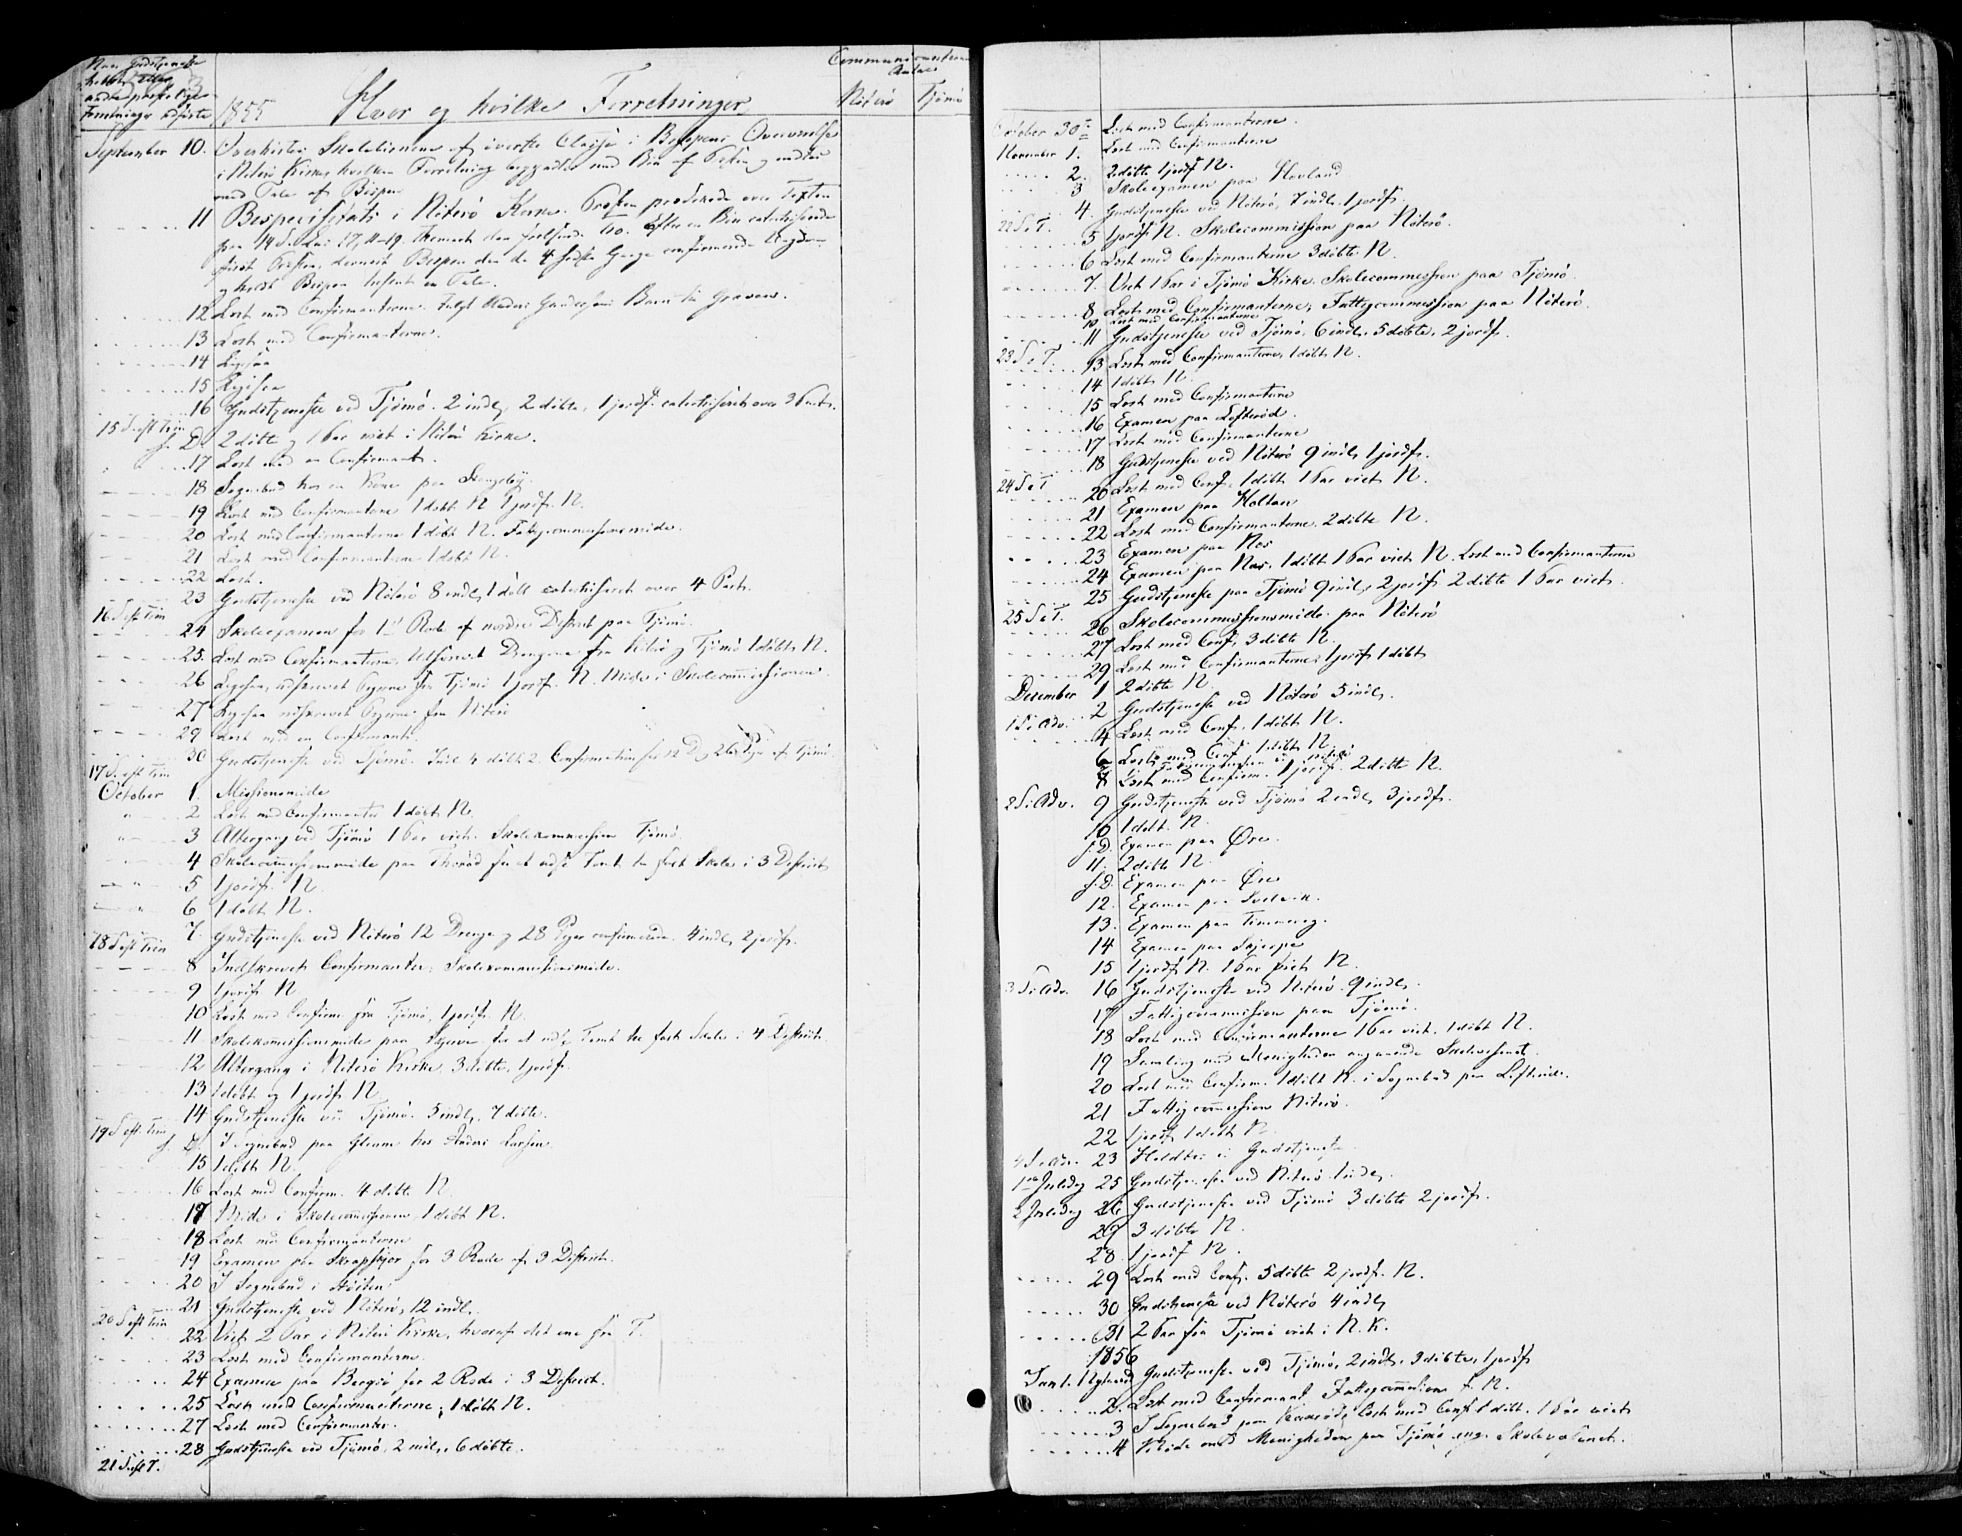 Naar Gudstjeneste
holdtes eller
andre præstelige
Forretninger udførte
1855 Hvor og hvilke Forretninger
Communicanternes Antal
Nøterø Tjömö
September 10. Skolebörnene af överste Classe i Bispens Overværelse
i Nøterø Kirke, hvilken Forretning med Bön af og endtes
med Tale af Bispen
11 Bispevisitats i Nøterø Kirke. Provsten prædikede over Texten
paa 14 S. Luc. 17, 11-19.
og holdt Bispen en Tale.
12 Læst med Confirmanterne. Barn til Graven.
13 Læst med Confirmanterne.
14 Ligesaa
15 Ligesaa
16 Gudstjeneste ved Tjömö. 2 indl, 2 döbte, 1 jordf. catechiseret over 3 Part.
15 S. eft Trin
s. D. 2 döbte og 1 Par viet i Nøterø Kirke.
17 Læst med en Confirmant.
18 Sognebud hos en Kone paa
19 Læst med Confirmantene 1 döbt N 1 jordf. N.
20 Læst med Confirmanterne 1 döbt N. Fattigcommissionsmöde.
21 Læst med Confirmanterne 1 döbt N.
22 Læst.
23 Gudstjeneste ved Nøterø 8 indl, 1 döbt catechiseret over 4 Part.
16 S eft Trin
24 Skoleexamen for 1ste Rode af nordre District paa Tjömö.
25. Læst med Confirmanterne, Udskrevet Drengene fra Nøterø og Tjömö 1 döbt N.
26 Ligesaa, udskrevet Pigerne fra Tjömö 1 jordf. N. Möde i Skolecommissionen.
27 Ligesaa udskrevet Pigerne fra Nøterø
29 Læst med en Confirmant.
30 Gudstjeneste ved Tjömö. Indl 4 döbt 2. Confirmation for 12 D og 26 Piger af Tjömö
17 S. eft Trin
October 1. Missionsmöde
2 Læst med Confirmanter 1 döbt N.
3 Altergang ved Tjömö 1 Par viet. Skolekommission Tjömö.
4 Skolecommissionsmöde paa for at udse Tomt til fast Skole i 3 District
5 1 jordf. N.
6 1 döbt N.
7. Gudstjeneste ved Nøterø 12 Drenge og 28 Piger confirmerede. 4 indl, 2 jordf.
18 S eft Trin
8 Indskrevet Confirmanter, Skolekommissionsmöde.
9 1 jordf N
10 Læst med Confirm fra Tjömö, 1 jordf. N.
11 Skolekommissionsmöde paa for at udse Tomt til fast Skole i 4 District.
12 Altergang i Nøterø Kirke, 3 döbte, 1 jordf.
13 1 döbt og 1 jordf. N
14 Gudstjeneste ved Tjömö. 5 indl, 7 döbte.
19 S eft Trin
s. D. I Sognebud paa Glenne hos Anders Larsen.
15 1 döbt N.
16 Læst med Confirm. 4 döbte N
17 Möde i Skolecommissionen, 1 döbt N.
18 Læst med Confirmanterne
19 Examen paa for 3 Rode af 3 District.
20 I Sognebud i
21 Gudstjeneste ved Nøterø, 12 indl.
20 S eft Trin
22 Viet 2 Par i Nøterø Kirke, hvoraf det ene fra T.
23 Læst med Confirmanterne.
24 Examen paa Bergsö for 2 Rode i 3 District.
25 Læst med Confirmanterne, 1 döbt N.
27 Læst med Confirmanter.
28 Gudstjeneste ved Tjömö, 2 indl, 6 döbte.
21 S eft T.
October 30te Læst med Confirmanterne.
November 1. Læst med Confirmanterne
2. 2 döbte 1 jordf N.
3 Skoleexamen paa Hovland
4. Gudstjeneste ved Nøterö, 7 indl. 1 jordf.
22 S e T.
5 1 jordf N. Skolecommission paa Nøterö.
6 Læst med Confirmanterne 3 döbte N.
7. Viet 1 Par i Tjömö Kirke. Skolecommission paa Tjömö
8 Læst med Confirmanterne, Fattigcommission paa Nøterö
10 Læst med Confirmanterne
11 Gudstjeneste ved Tjömö, 6 indl, 5 döbte, 2 jordf.
23 S e T.
13 Læst med Confirmanterne, 1 döbt N.
14 1 döbt N.
15 Læst med Confirmanterne
16 Examen paa Lofteröd.
17 Læst med Confirmanterne
18 Gudstjeneste ved Nøterö 9 indl, 1 jordf.
24 S e T
20 Læst med Conf. 1 döbt 1 Par viet N.
21 Examen paa Holtan
22 Læst med Confirmanterne, 2 döbte N.
23 Examen paa Næs
24 Examen paa Næs, 1 döbt 1 Par viet N. Læst med Confirmanterne
25 Gudstjeneste paa Tjömö 9 indl, 2 jordf 2 döbte 1 Par viet.
25 S e T.
26 Skolecommissionsmöde paa Nøterö
27 Læst med Conf. 3 döbte N.
29 Læst med Confirmanterne, 1 jordf 1 döbt
December 1 2 döbte N.
2 Gudstjeneste ved Nøterö 5 indl.
1 S i Adv.
4 Læst med Conf. 1 döbt N.
6 Læst med Conf. 1 döbt N
8 Læst med Confirm. 1 jordf. 2 döbte N.
2 S. i Adv. 9 Gudstjeneste ved Tjömö 2 indl, 3 jordf.
10 1 döbt. N.
s. D. Examen paa Øre.
11. 2 döbte N.
s. D. Examen paa Øre
12. Examen paa
13. Examen paa
14 Examen paa
15 1 jordf N. 1 Par viet N.
3 S. i Adv. 16 Gudstjeneste ved Nøterö 9 indl.
17 Fattigcommission paa Tjömö.
18 Læst med Confirmanterne 1 Par viet. 1 döbt N.
19 Samling med Menigheden angaaende Skolevæsenet
20 Læst med Confirm. 1 döbt N. i Sognebud paa
21 Fattigcommission Nøterö.
22 1 jordf 1 döbt N.
4 S. i Adv. 23 Gudstjeneste
1ste Juledag 25 Gudstjeneste ved Nøterö 1 indl,
2 Juledag 26 Gudstjeneste ved Tjömö 3 döbte 2 jordf.
27 3 döbte N.
28. 1 jordf N.
29 Læst med Conf. 5 döbte 2 jordf. N.
30 Gudstjeneste ved Nøterö 4 indl,
31 2 Par fra Tjömö viet i N. K.
1856
Jan 1. Nytaard Gudstjeneste ved Tjömö, 2 indl, 3 döbte, 1 jordf
2. Læst med Confirmant, Fattigcommission f. N.
3 I Sognebud paa Læst med Conf. 1 döbt. 1 Par viet
4 Möde med Menigheden paa Tjömö ang. Skolevæsenet.